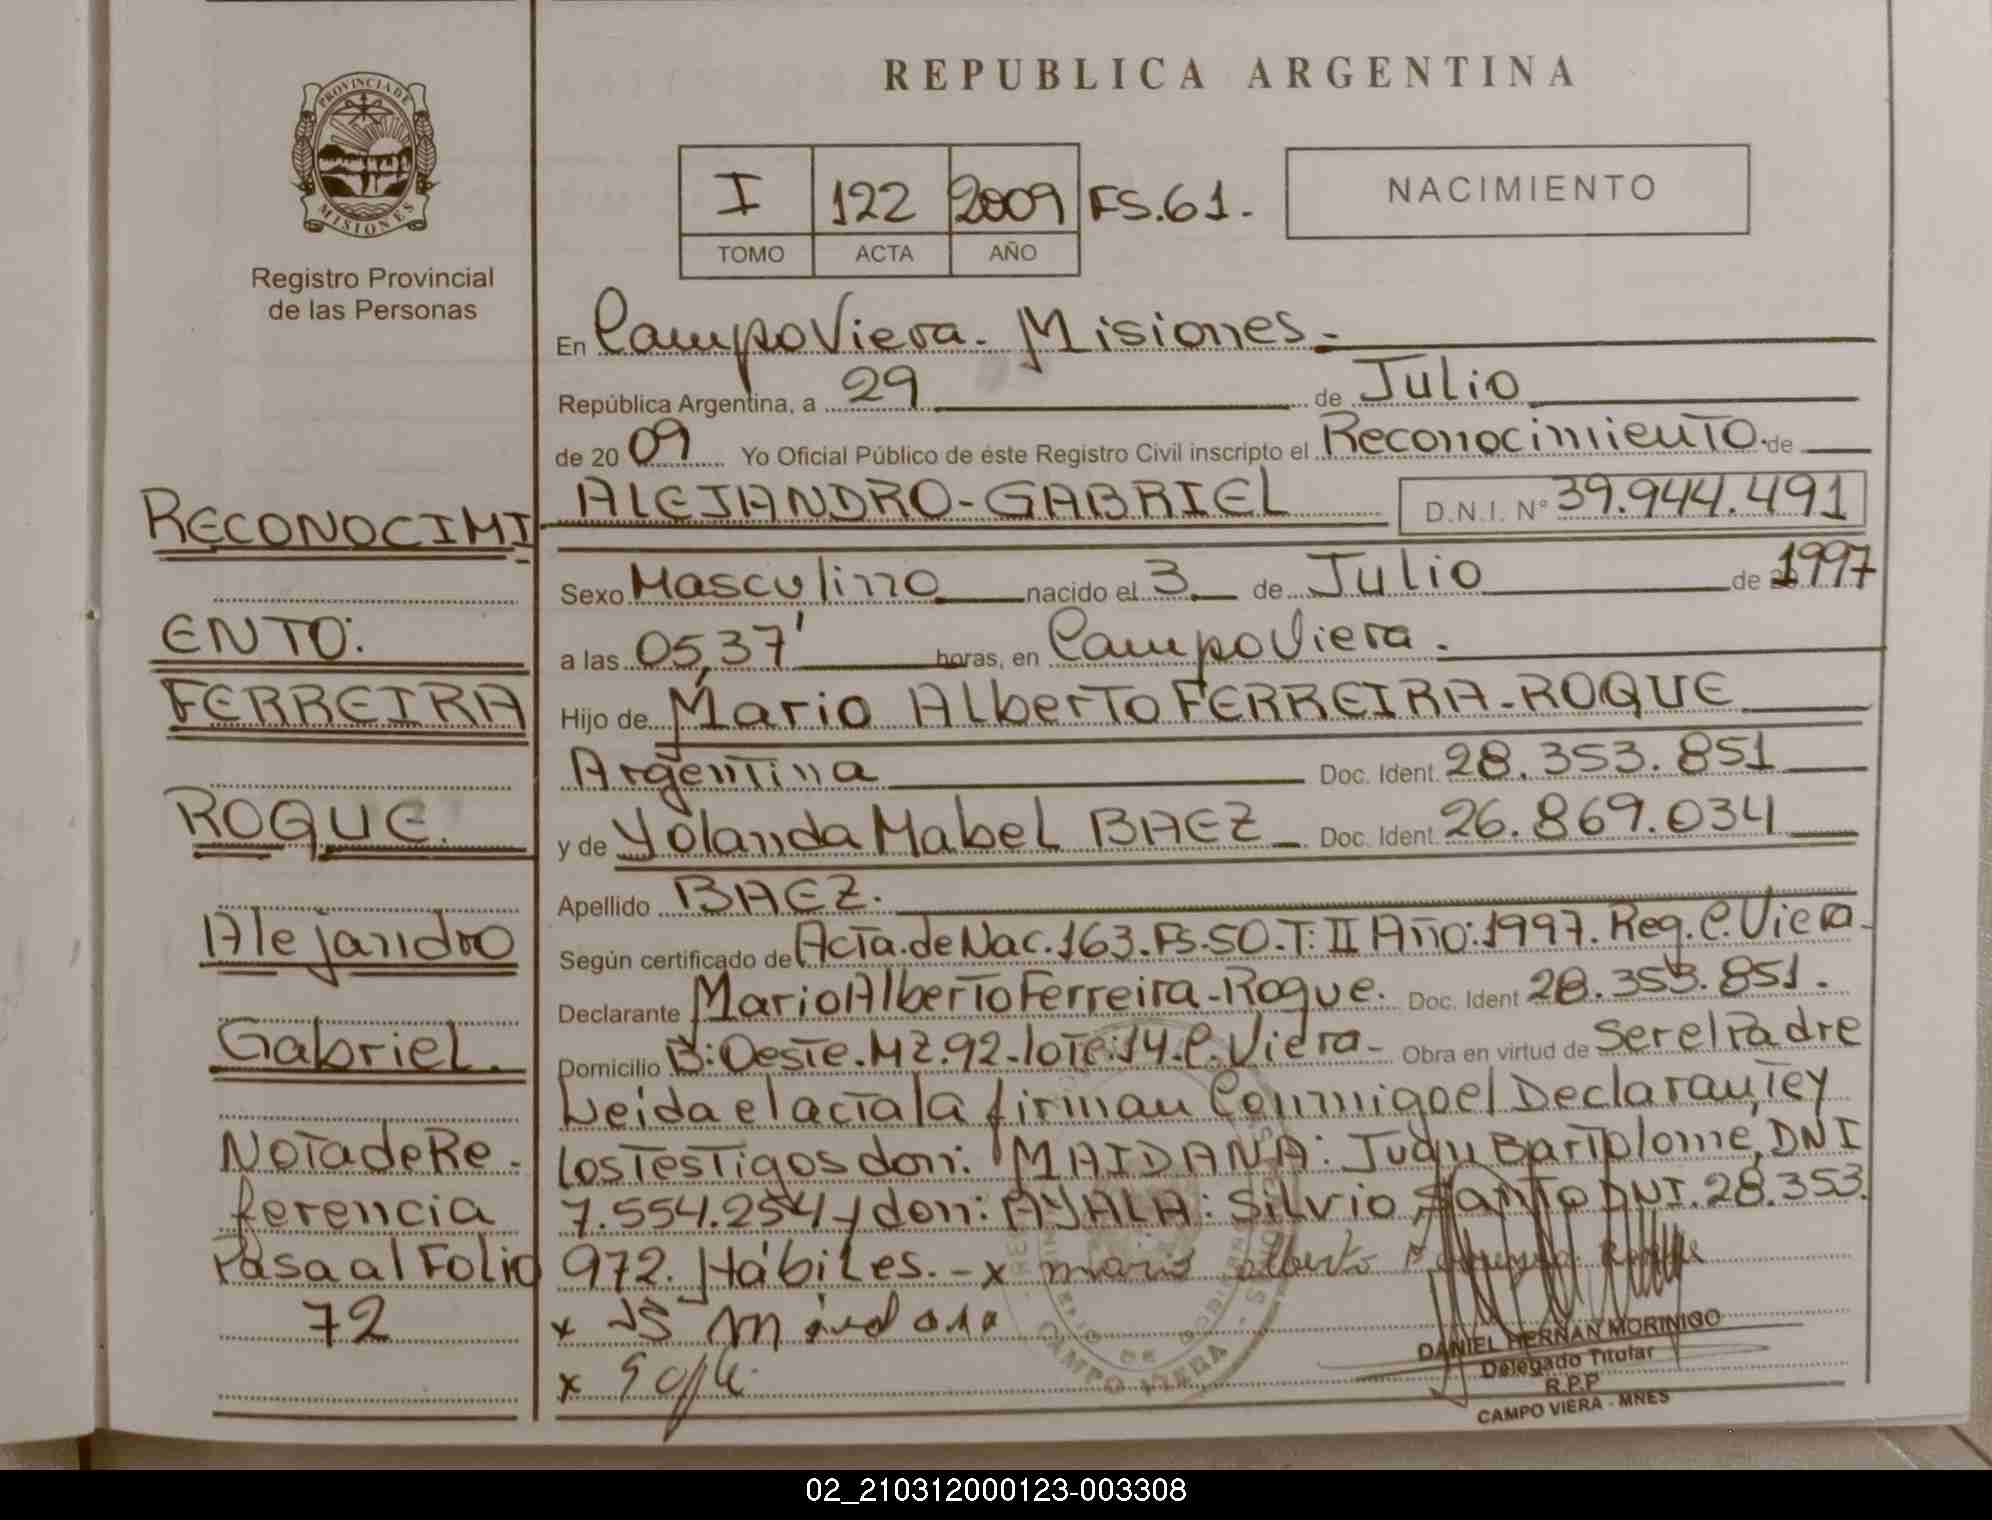 PROVINCIA DE
MISIONES
Registro Provincial
de las Personas
RECONOCIMI
ENTO:
FERREIRA
ROQUE.
Alejandro
Gabriel.
Nota de Re-
ferencia
Pasa al Folio
72
REPUBLICA ARGENTINA
I 122 2009 FS.61.-
TOMO ACTA AÑO
NACIMIENTO
En Campo Viera - Misiones.-
República Argentina, a 29 de Julio
de 2009 Yo Oficial Público de éste Registro Civil inscripto el Reconocimiento. de
ALEJANDRO-GABRIEL D.N.I. N° 39.944.491
Sexo Masculino nacido el 3 de Julio de 1997
a las 05,37' horas, en Campo Viera.
Hijo de Mario Alberto FERREIRA-ROQUE
Argentina Doc. Ident. 28.353.851
y de Yolanda Mabel BAEZ Doc. Ident. 26.869.034
Apellido BAEZ.
Según certificado de Acta de Nac. 163. Fs. 50. T: II Año: 1997. Reg. C. Viera.
Declarante Mario Alberto Ferreira-Roque. Doc. Ident 28.353.851.
Domicilio B: Oeste. MZ. 92-lote: 14. C. Viera- Obra en virtud de Ser el Padre
Leida el acta la firman Conmigo el Declarante y
los Testigos don: MAIDANA: Juan Bartolome, DNI
7.554.254 y don: AYALA: Silvio Santo DNI. 28.353.
972. Hábiles.- x mario alberto Ferreira Roque
x JB Maidana
x
CAMPO VIERA
DANIEL HERNAN MORINIGO
Delegado Titular
R.P.P
CAMPO VIERA - MNES
02_210312000123-003308